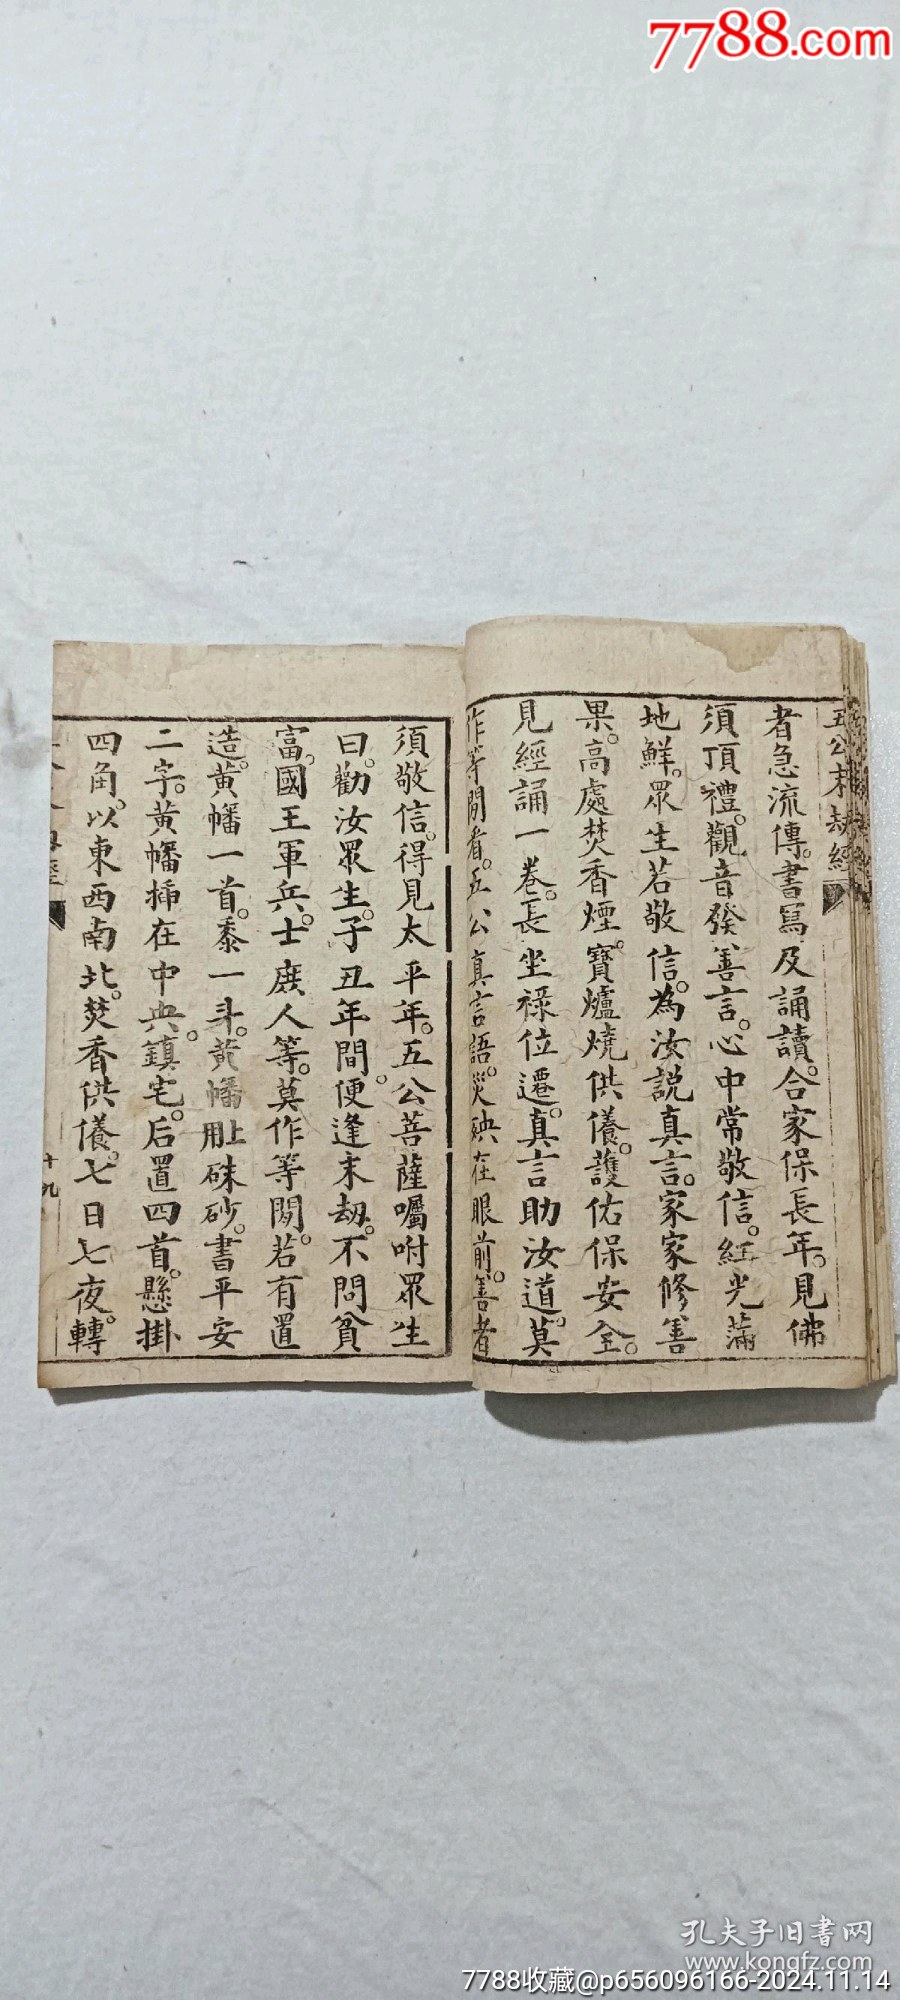 7788.com
五公末劫經
者急流傳。書寫及誦讀。合家保長年。見佛
須頂禮。觀音發善言。心中常敬信。紅光滿
地鮮。眾生若敬信。為汝説真言。家家修善
果。高處焚香煙。寶爐燒供養。護佑保安全。
見經誦一卷。長坐祿位遷。真言助汝道。莫
作等閒看。五公真言語。災殃在眼前。善者
須敬信。得見太平年。五公菩薩囑咐眾生
曰。勸汝眾生。子丑年間。便逢末劫。不問貧
富。國王軍兵。士庶人等。莫作等閒。若有置
造。黃幡一首。黍一斗。黃幡上用硃砂。書平安
二字。黃幡插在中央。鎮宅。后置四首。懸掛
四角。以東西南北。焚香供養。七日七夜。轉
十九
孔夫子旧书网
www.kongfz.com
7788收藏@p656096166-2024.11.14